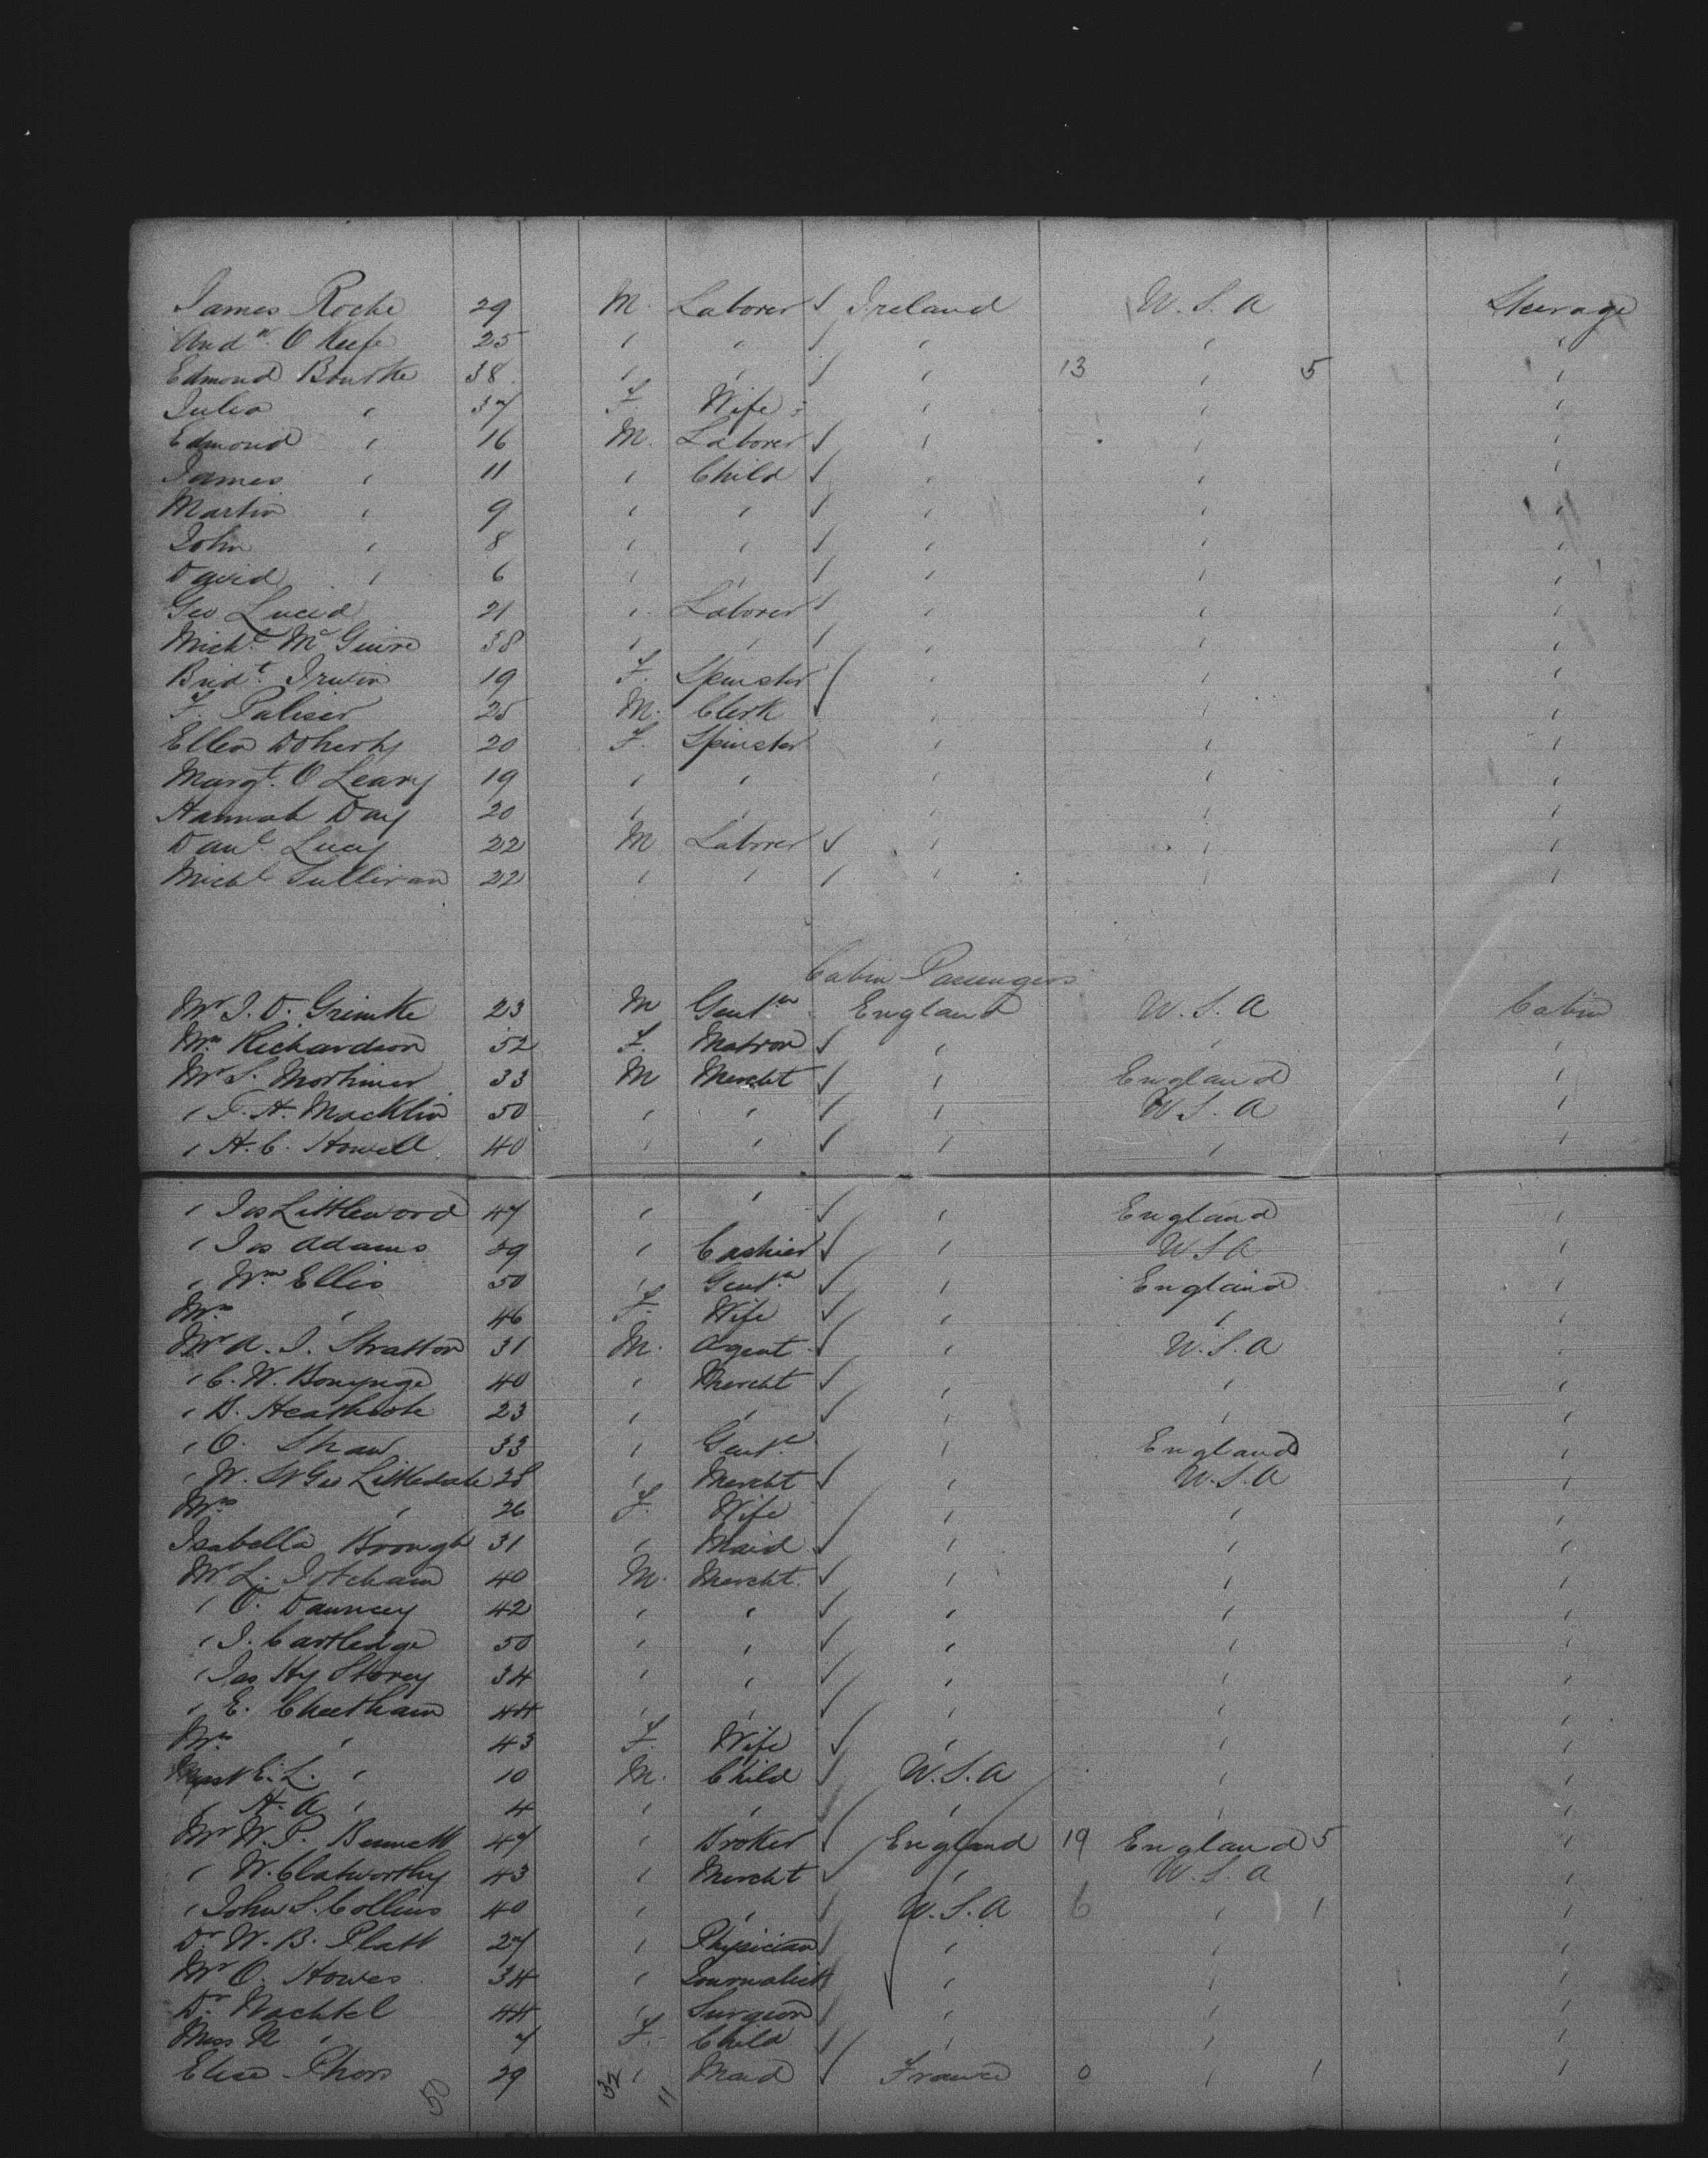 James Roche 29 M. Laborer Ireland U.S.A Steerage
And.w O Keefe 25 " " " " "
Edmond Bourke 38 " " " 13 " 5 "
Julia " 37 F. Wife " " "
Edmond " 16 M. Laborer " " "
James " 11 " Child " " "
Martin " 9 " " " " "
John " 8 " " " " "
David " 6 " " " " "
Geo Lucid 21 " Laborer " " "
Mich.l McGuire 38 " " " " "
Brid.t Irwin 19 F. Spinster " " "
F. Paliser 25 M. Clerk " " "
Ellen Doherty 20 F. Spinster " " "
Margt. O Leary 19 " " " " "
Hannah Day 20 " " " " "
Dan.l Lucy 22 M Laborer " " "
Mich.l Sullivan 22 " " " " "
Cabin Passengers
Mr J. D. Grimke 23 M Gent.n England U.S.A Cabin
Mrs Richardson 52 F. Matron " " "
Mr S. Mortimer 33 M Mercht " England "
" F. H. Macklin 50 " " " U.S.A "
" H. C. Howell 40 " " " " "
" Jos Littlewood 47 " " " England "
" Jos Adams 39 " Cashier " U.S.A "
" Wm Ellis 50 " Gent.n " England "
Mrs " 46 F. Wife " " "
Mr A. J. Stratton 31 M. Agent " U.S.A "
" C. W. Bonynge 40 " Mercht " " "
" B. Heathcote 23 " " " " "
" O. Shaw 33 " Gent.n " England "
" W. St Geo Littledale 28 " Mercht " U.S.A "
Mrs " 26 F. Wife " " "
Isabella Brough 31 " Maid " " "
Mr L. Jotcham 40 M. Mercht. " " "
" O. Dauncey 42 " " " " "
" J. Cartledge 50 " " " " "
" Jas Hy Storey 34 " " " " "
" E. Cheetham 44 " " " " "
Mrs " 43 F. Wife " " "
Mast E. L. " 10 M. Child U.S.A " "
" H. A " 4 " " " " "
Mr W. P. Bennett 47 " Broker England 19 England 5 "
" W. Clatworthy 43 " Mercht " U.S.A "
" John S. Collins 40 " " U.S.A 6 " 1 "
Dr W. B. Platt 27 " Physician " " "
Mr O. Howes 34 " Journalist " " "
Dr Wachtel 44 " Surgeon " " "
Miss N " 7 F. Child " " "
Elise 29 " Maid France 0 " 1 "
50 32 11